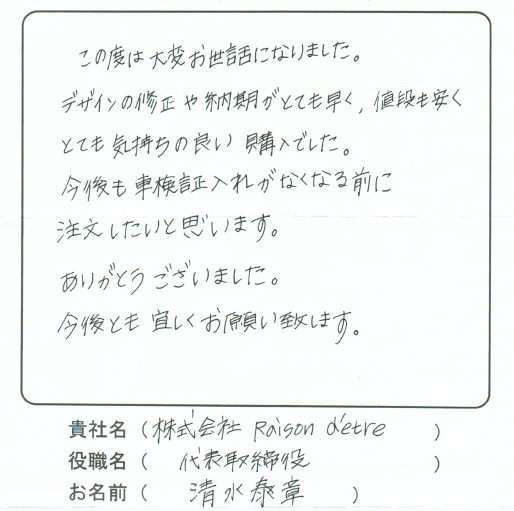 この度は大変お世話になりました。
デザインの修正や納期がとても早く、値段も安く
とても気持ちの良い購入でした。
今後も車検証入れがなくなる前に
注文したいと思います。
ありがとうございました。
今後とも宜しくお願い致します。
貴社名（株式会社 Raison d'etre ）
役職名（ 代表取締役 ）
お名前（ 清水泰章 ）